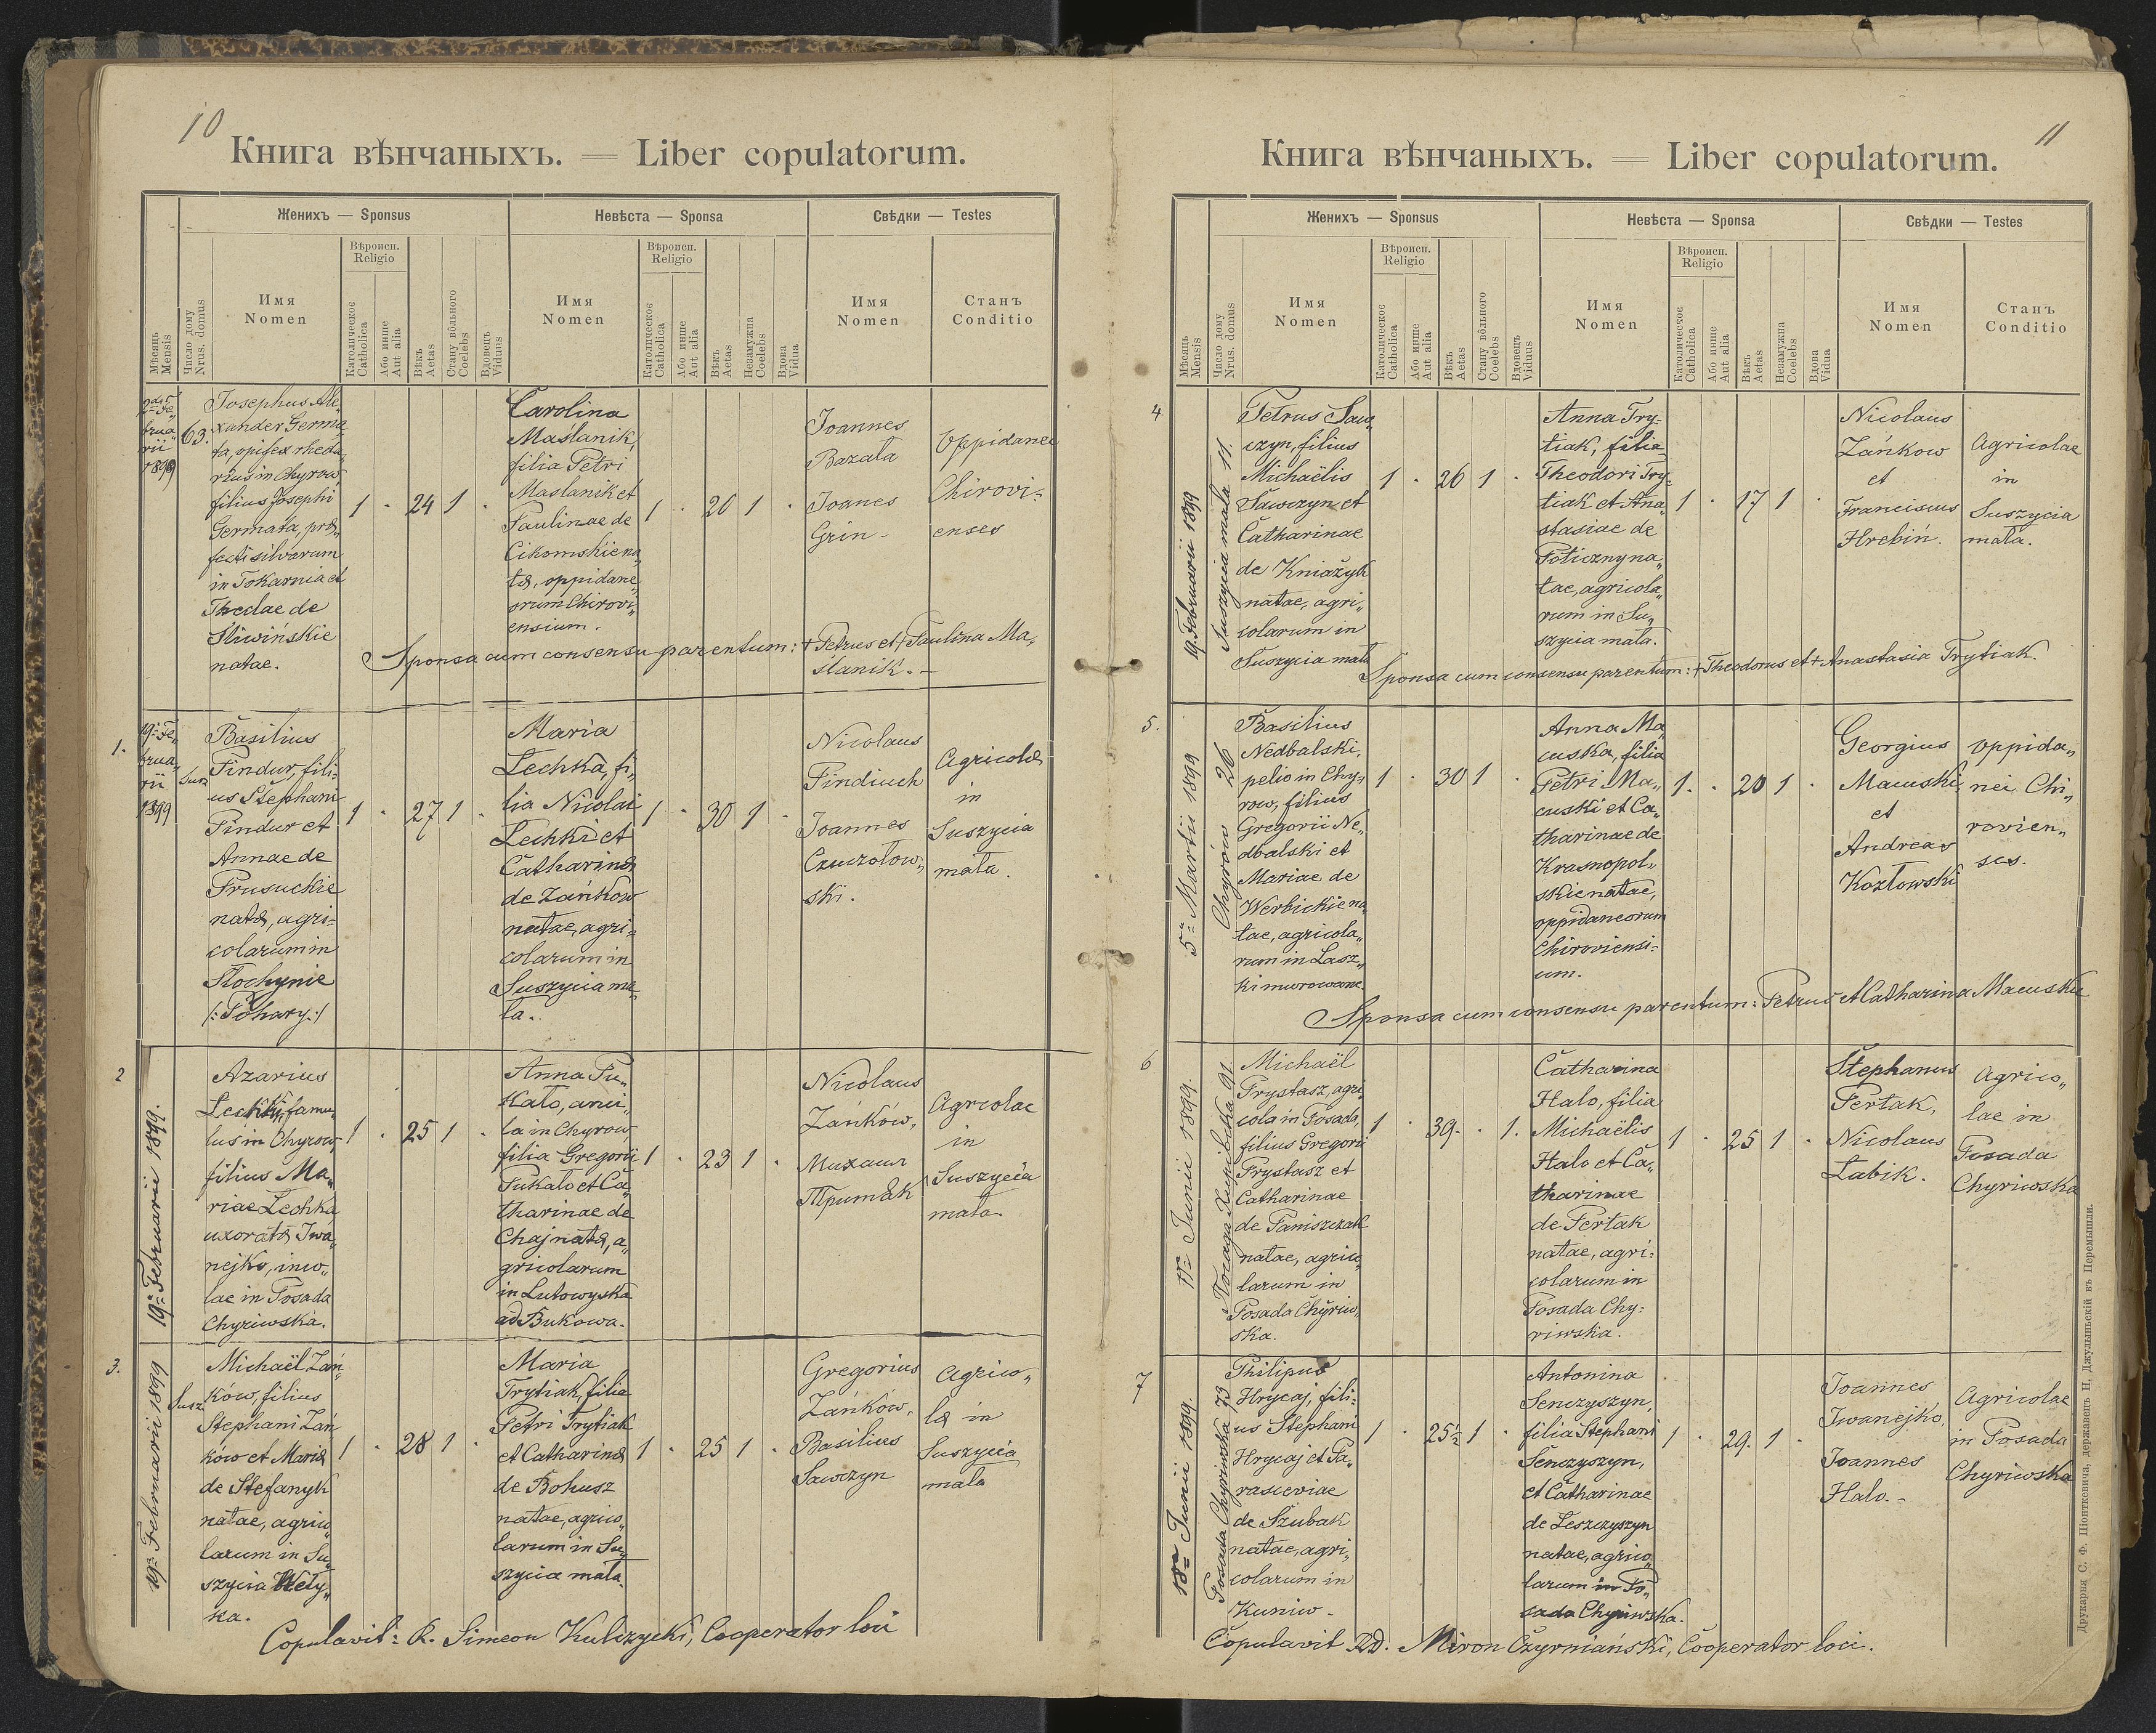 10
Книга вѣнчаныхъ. — Liber copulatorum.
Женихъ — Sponsus
Невѣста — Sponsa
Свѣдки — Testes
Мѣсяць
Mensis
Число дому
Nrus. domus
Имя
Nomen
Вѣроисп.
Religio
Католическое
Catholica
Або инше
Aut alia
Вѣкъ
Aetas
Стану вôльного
Coelebs
Вдовець
Viduus
Имя
Nomen
Вѣроисп.
Religio
Католическое
Catholica
Або инше
Aut alia
Вѣкъ
Aetas
Незамужна
Coelebs
Вдова
Vidua
Имя
Nomen
Станъ
Conditio
Fe„
brua„
rii
1899
63.
Josephus Ale„
xander Germa„
ta, opifex rheda„
rius in Chyrow,
filius Josephi
Germata, præ„
fecti silvarum
in Tokarnia et
Theclae de
Śliwińskie
natae.
1 · 24 1 ·
Carolina
Maślanik,
filia Petri
Maslanik et
Paulinae de
Cikomskie na„
tæ, oppidane„
orum Chirovi„
ensium.
1 · 20 1 ·
Joannes
Bazata
Joanes
Grin-
Oppidanei
Chirovi-
enses
Sponsa cum consensu parentum: + Petrus et + Paulina Ma„
ślanik.-
1.
19ª Fe„
brua„
rii
1899
Susz
Basilius
Pindur, fili-
us Stephani
Pindur et
Annae de
Prusuckie
natæ, agri-
colarum in
Słochynie
/:Pohary:/
1 · 27 1 ·
Maria
Lechka, fi„
lia Nicolai
Lechki et
Catharinæ
de Zańkow
natae, agri-
colarum in
Suszycia ma„
ła.
1 · 30 1 ·
Nicolaus
Pindiuch
Joannes
Czuczołow„
ski.
Agricolæ
in
Suszycia
mała.
2
19ª Februarii 1899.
Azarius
Lechkij, famu„
lus in Chyrow,
filius Ma„
riae Lechka
uxoratæ Iwa„
nejko, inco„
lae in Posada
Chyriwska.
1 · 25 1 ·
Anna Pu„
kało, anci„
la in Chyrow,
filia Gregorii
Pukało et Ca„
tharinae de
Chaj natæ, a„
gricolarum
in Lutowyska
ad Bukowa.
1 · 23 1 ·
Nicolaus
Zańków,
Михаил
Тритяк
Agricolae
in
Suszycia
mała
3.
19ª Februarii 1899
Susz
Michaël Zań„
ków, filius
Stephani Zań„
ków et Mariæ
de Stefanyk
natae, agrico„
larum in Su„
szycia Wely„
ka.
1 · 28 1 ·
Maria
Trytiak, filia
Petri Trytiak
et Catharinæ
de Bohusz
natae, agrico„
larum in Su„
szycia mała.
1 · 25 1 ·
Gregorius
Zańków,
Basilius
Sawczyn
Agrico„
læ in
Suszycia
mała
Copulavit: R. Simeon Kulczycki, Cooperator loci
11
Книга вѣнчаныхъ. — Liber copulatorum.
Женихъ — Sponsus
Невѣста — Sponsa
Свѣдки — Testes
Мѣсяць
Mensis
Число дому
Nrus. domus
Имя
Nomen
Вѣроисп.
Religio
Католическое
Catholica
Або инше
Aut alia
Вѣкъ
Aetas
Стану вôльного
Coelebs
Вдовець
Viduus
Имя
Nomen
Вѣроисп.
Religio
Католическое
Catholica
Або инше
Aut alia
Вѣкъ
Aetas
Незамужна
Coelebs
Вдова
Vidua
Имя
Nomen
Станъ
Conditio
4
19. Februarii 1899
Suszycia mała 11.
Petrus Saw„
czyn, filius
Michaëlis
Sawczyn et
Catharinae
de Kniażyk
natae, agri„
colarum in
Suszycia mała
1 · 26 1 ·
Anna Try-
tiak, filia
Theodori Try-
tiak et Ana„
stasiae de
Poticzny na„
tae, agricola„
rum in Su„
szycia mała.
1 · 17 1 ·
Nicolaus
Zańkow
et
Franciscus
Hrebiń.
Agricolae
in
Suszycia
mała.
Sponsa cum consensu parentum: + Theodorus et + Anastasia Trytiak.
5.
5ª Martii 1899
Chyrów 26
Basilius
Nedbalski,
pelio in Chy„
row, filius
Gregorii Ne„
dbalski et
Mariae de
Werbickie na„
tae, agricola„
rum in Łasz„
ki murowane
1 · 30 1 ·
Anna Ma„
cuska, filia
Petri Ma„
cuski et Ca„
tharinae de
Krasnopol„
skie natae,
oppidaneorum
Chiroviensi-
um.
1. · 20 1 ·
Georgius
Macuski,
et
Andreas
Kozłowski
oppida„
nei Chi„
rovien„
ses.
Sponsa cum consensu parentum: Petrus et Catharina Macuskie
6
11ª Junii 1899.
Michaël
Prystasz, agri„
cola in Posada,
filius Gregorii
Prystasz et
Catharinae
de Paniszczak
natae, agrico„
larum in
Posada Chyriw„
ska.
1 · 39. · 1.
Catharina
Halo, filia
Michaëlis
Halo et Ca„
tharinae
de Pertak
natae, agri-
colarum in
Posada Chy-
riwska.
1 · 25 1 ·
Stephanus
Pertak,
Nicolaus
Łabik.
Agrico„
lae in
Posada
Chyriwska
7
18ª Junii 1899.
Posada Chyriwska 73
Philipus
Hrycaj, fili-
us Stephani
Hrycaj et Pa„
rasceviae
de Szubak
natae, agri„
colarum in
Kuniw-
1 · 25½ 1 ·
Antonina
Senczyszyn,
filia Stephani
Senczyszyn,
et Catharinae
de Leszczyszyn
natae, agrico„
larum in Po„
sada Chyriwska.
1 · 29. 1 ·
Joannes
Iwanejko,
Joannes
Halo.-
Agricolae
in Posada
Chyriwska
Copulavit Ad. Miron Czyrniański, Cooperator loci.
Друкарня С. Ф. Піонткевича, державець Н. Джулыньскій въ Перемышли.